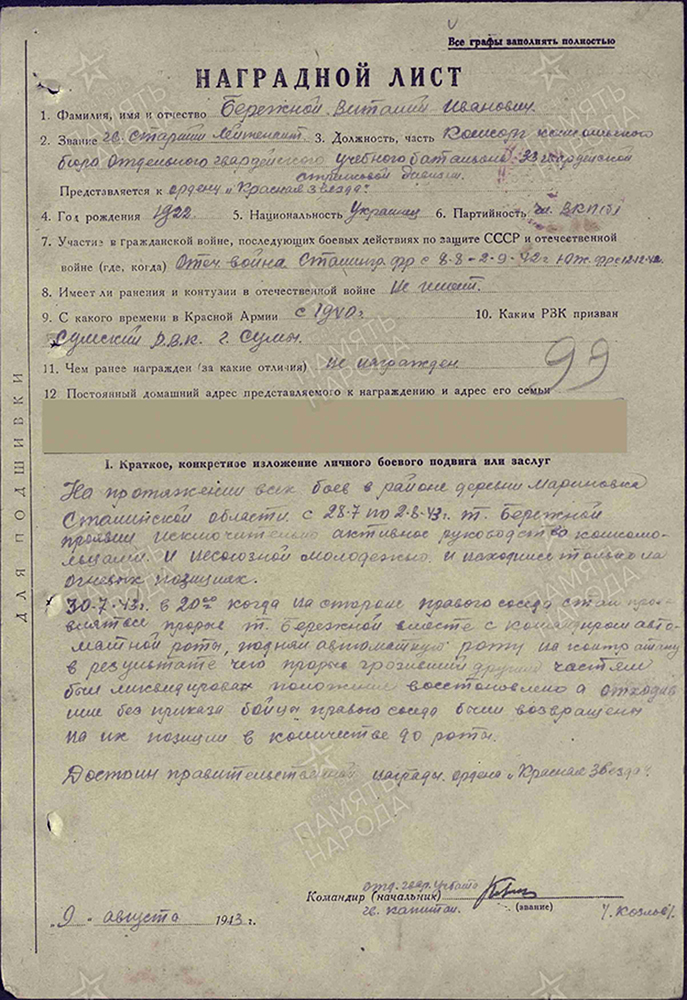 Все графы заполнять полностью
НАГРАДНОЙ ЛИСТ
1. Фамилия, имя и отчество Бережной Виталий Иванович
2. Звание гв. старший лейтенант 3. Должность, часть Комсорг комсомольского
бюро Отдельного гвардейского учебного батальона 33 гвардейской
стрелковой дивизии.
Представляется к ордену „Красная звезда"
4. Год рождения 1922. 5. Национальность Украинец 6. Партийность чл. ВКП(б)
7. Участие в гражданской войне, последующих боевых действиях по защите СССР и отечественной
войне (где, когда) Отеч. война Сталингр. фр с 8-8-2-9-42г Юж. фр с 12-12-42
8. Имеет ли ранения и контузии в отечественной войне Не имеет.
9. С какого времени в Красной Армии с 1940г. 10. Каким РЗК призван
Сумский Р.В.К. г. Сумы.
11. Чем ранее награжден (за какие отличия) не награжден
99
12 Постоянный домашний адрес представляемого к награждению и адрес его семьи
I. Краткое, конкретное изложение личного боевого подвига или заслуг
На протяжении всех боев в районе деревни Мариновка
Сталинской области с 28-7 по 2-8-43г. т. Бережной
проявил исключительно активное руководство комсомо-
льцами и несоюзной молодежью и находился только на
огневых позициях.
30-7-43г. в 20 00 когда на стороне правого соседа стал проя-
вляться прорыв т. Бережной вместе с командиром авто-
матной роты, подняли автоматную роту на контратаку
в результате чего прорыв грозивший другим частям
был ликвидирован положение восстановлено а отходив
шие без приказа бойцы правого соседа были возвращены
на их позиции в количестве до роты.
Достоин правительственной награды ордена „Красная Звезда".
отд. гвар. учбата
Командир (начальник)
гв. капитан. (звание) /Козлов/.
„9" августа 1943 г.
ДЛЯ ПОДШИВКИ
ПАМЯТЬ НАРОДА